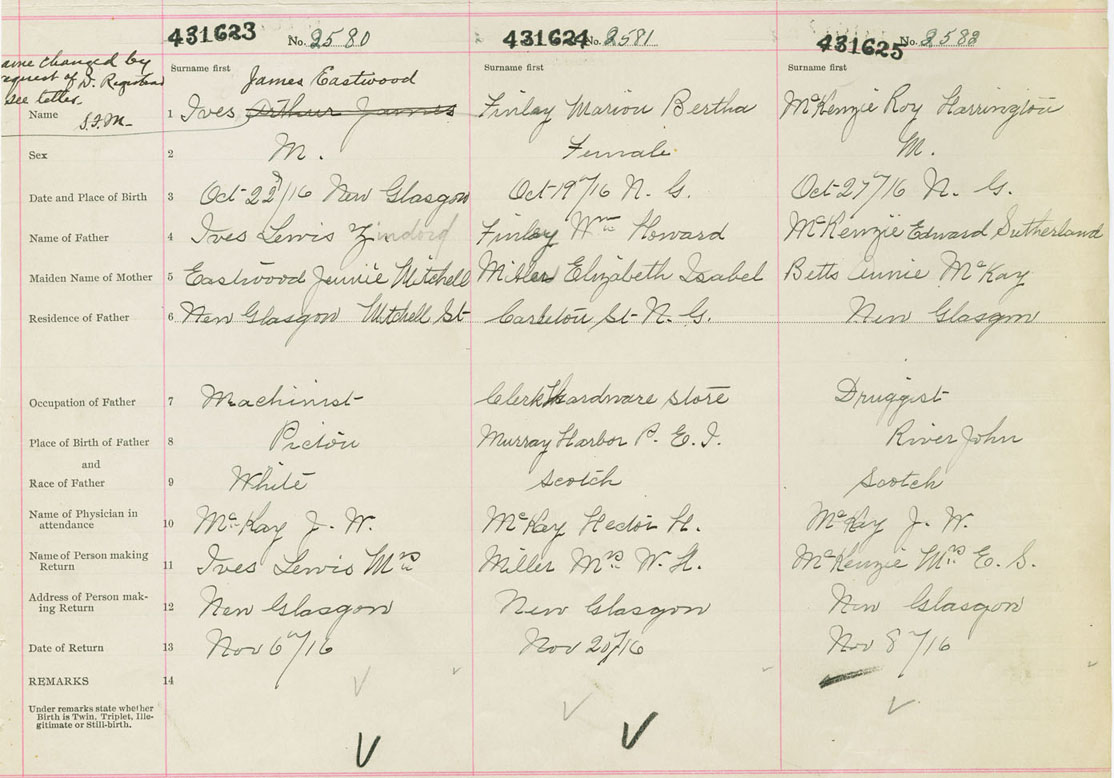 431623 No. 2580 431624 No. 2581 431625 No. 2582
ame changed by
equest of D. Registrar
see letter.
S.F.M.
Surname first Surname first Surname first
James Eastwood
Name 1 Ives Arthur James Finlay Marion Bertha McKenzie Roy Harrington
Sex 2 M. Female M.
Date and Place of Birth 3 Oct 22d/16 New Glasgow Oct 19th/16 N. G. Oct 27th/16 N. G.
Name of Father 4 Ives Lewis Finlay Wm Howard McKenzie Edward Sutherland
Maiden Name of Mother 5 Eastwood Jennie Mitchell Miller Elizabeth Isabel Betts Annie McKay
Residence of Father 6 New Glasgow Mitchell St Carleton St N. G. New Glasgow
Occupation of Father 7 Machinist Clerk Hardware Store Druggist
Place of Birth of Father 8 Pictou Murray Harbor P. E. I. River John
and
Race of Father 9 White Scotch Scotch
Name of Physician in
attendance 10 McKay J. W. McKay Hector H. McKay J. W.
Name of Person making
Return 11 Ives Lewis Mrs Miller Mrs W. H. McKenzie Mrs E. S.
Address of Person mak-
ing Return 12 New Glasgow New Glasgow New Glasgow
Date of Return 13 Nov 6th/16 Nov 20th/16 Nov 8th/16
REMARKS 14
Under remarks state whether
Birth is Twin, Triplet, Ille-
gitimate or Still-birth.